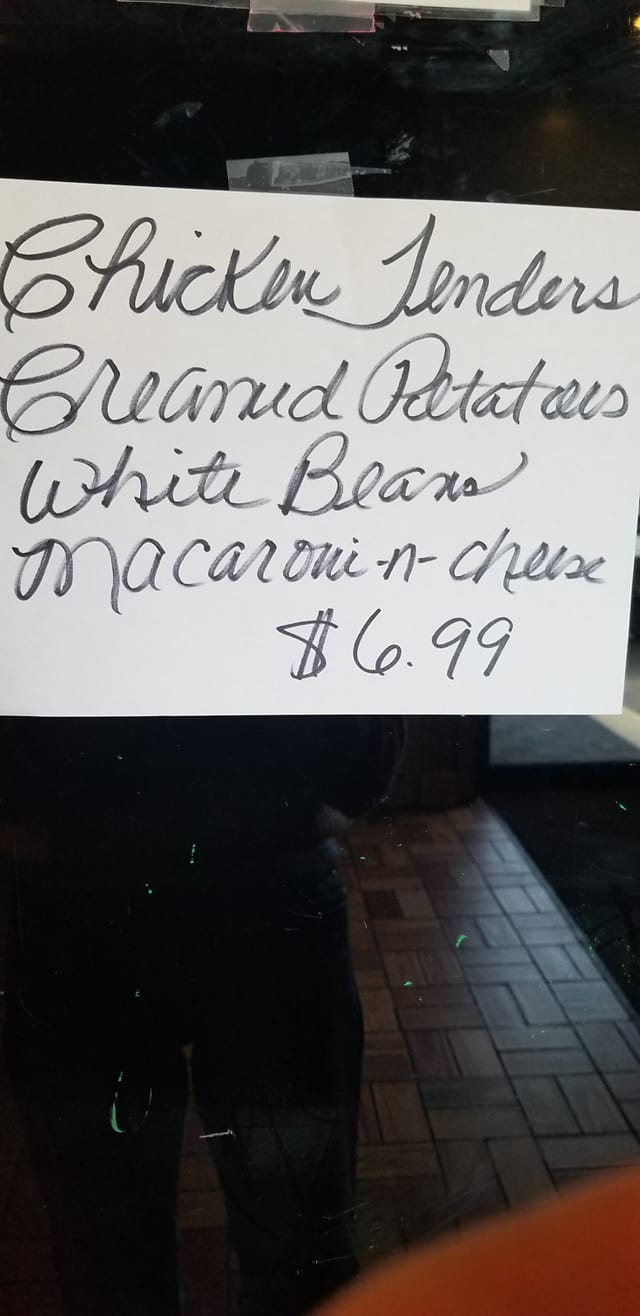 Chicken Tenders
Creamed Potatoes
White Beans
Macaroni-n-cheese
$6.99